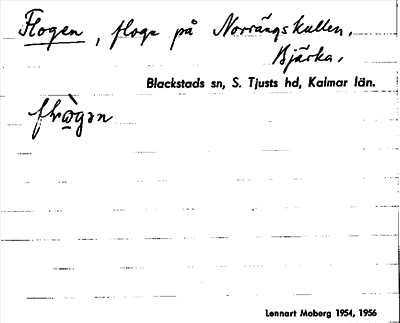 Flogen, floge på Norrängskullen.
Bjärka.
Blackstads sn, S. Tjusts hd, Kalmar län.
Lennart Moberg 1954, 1956